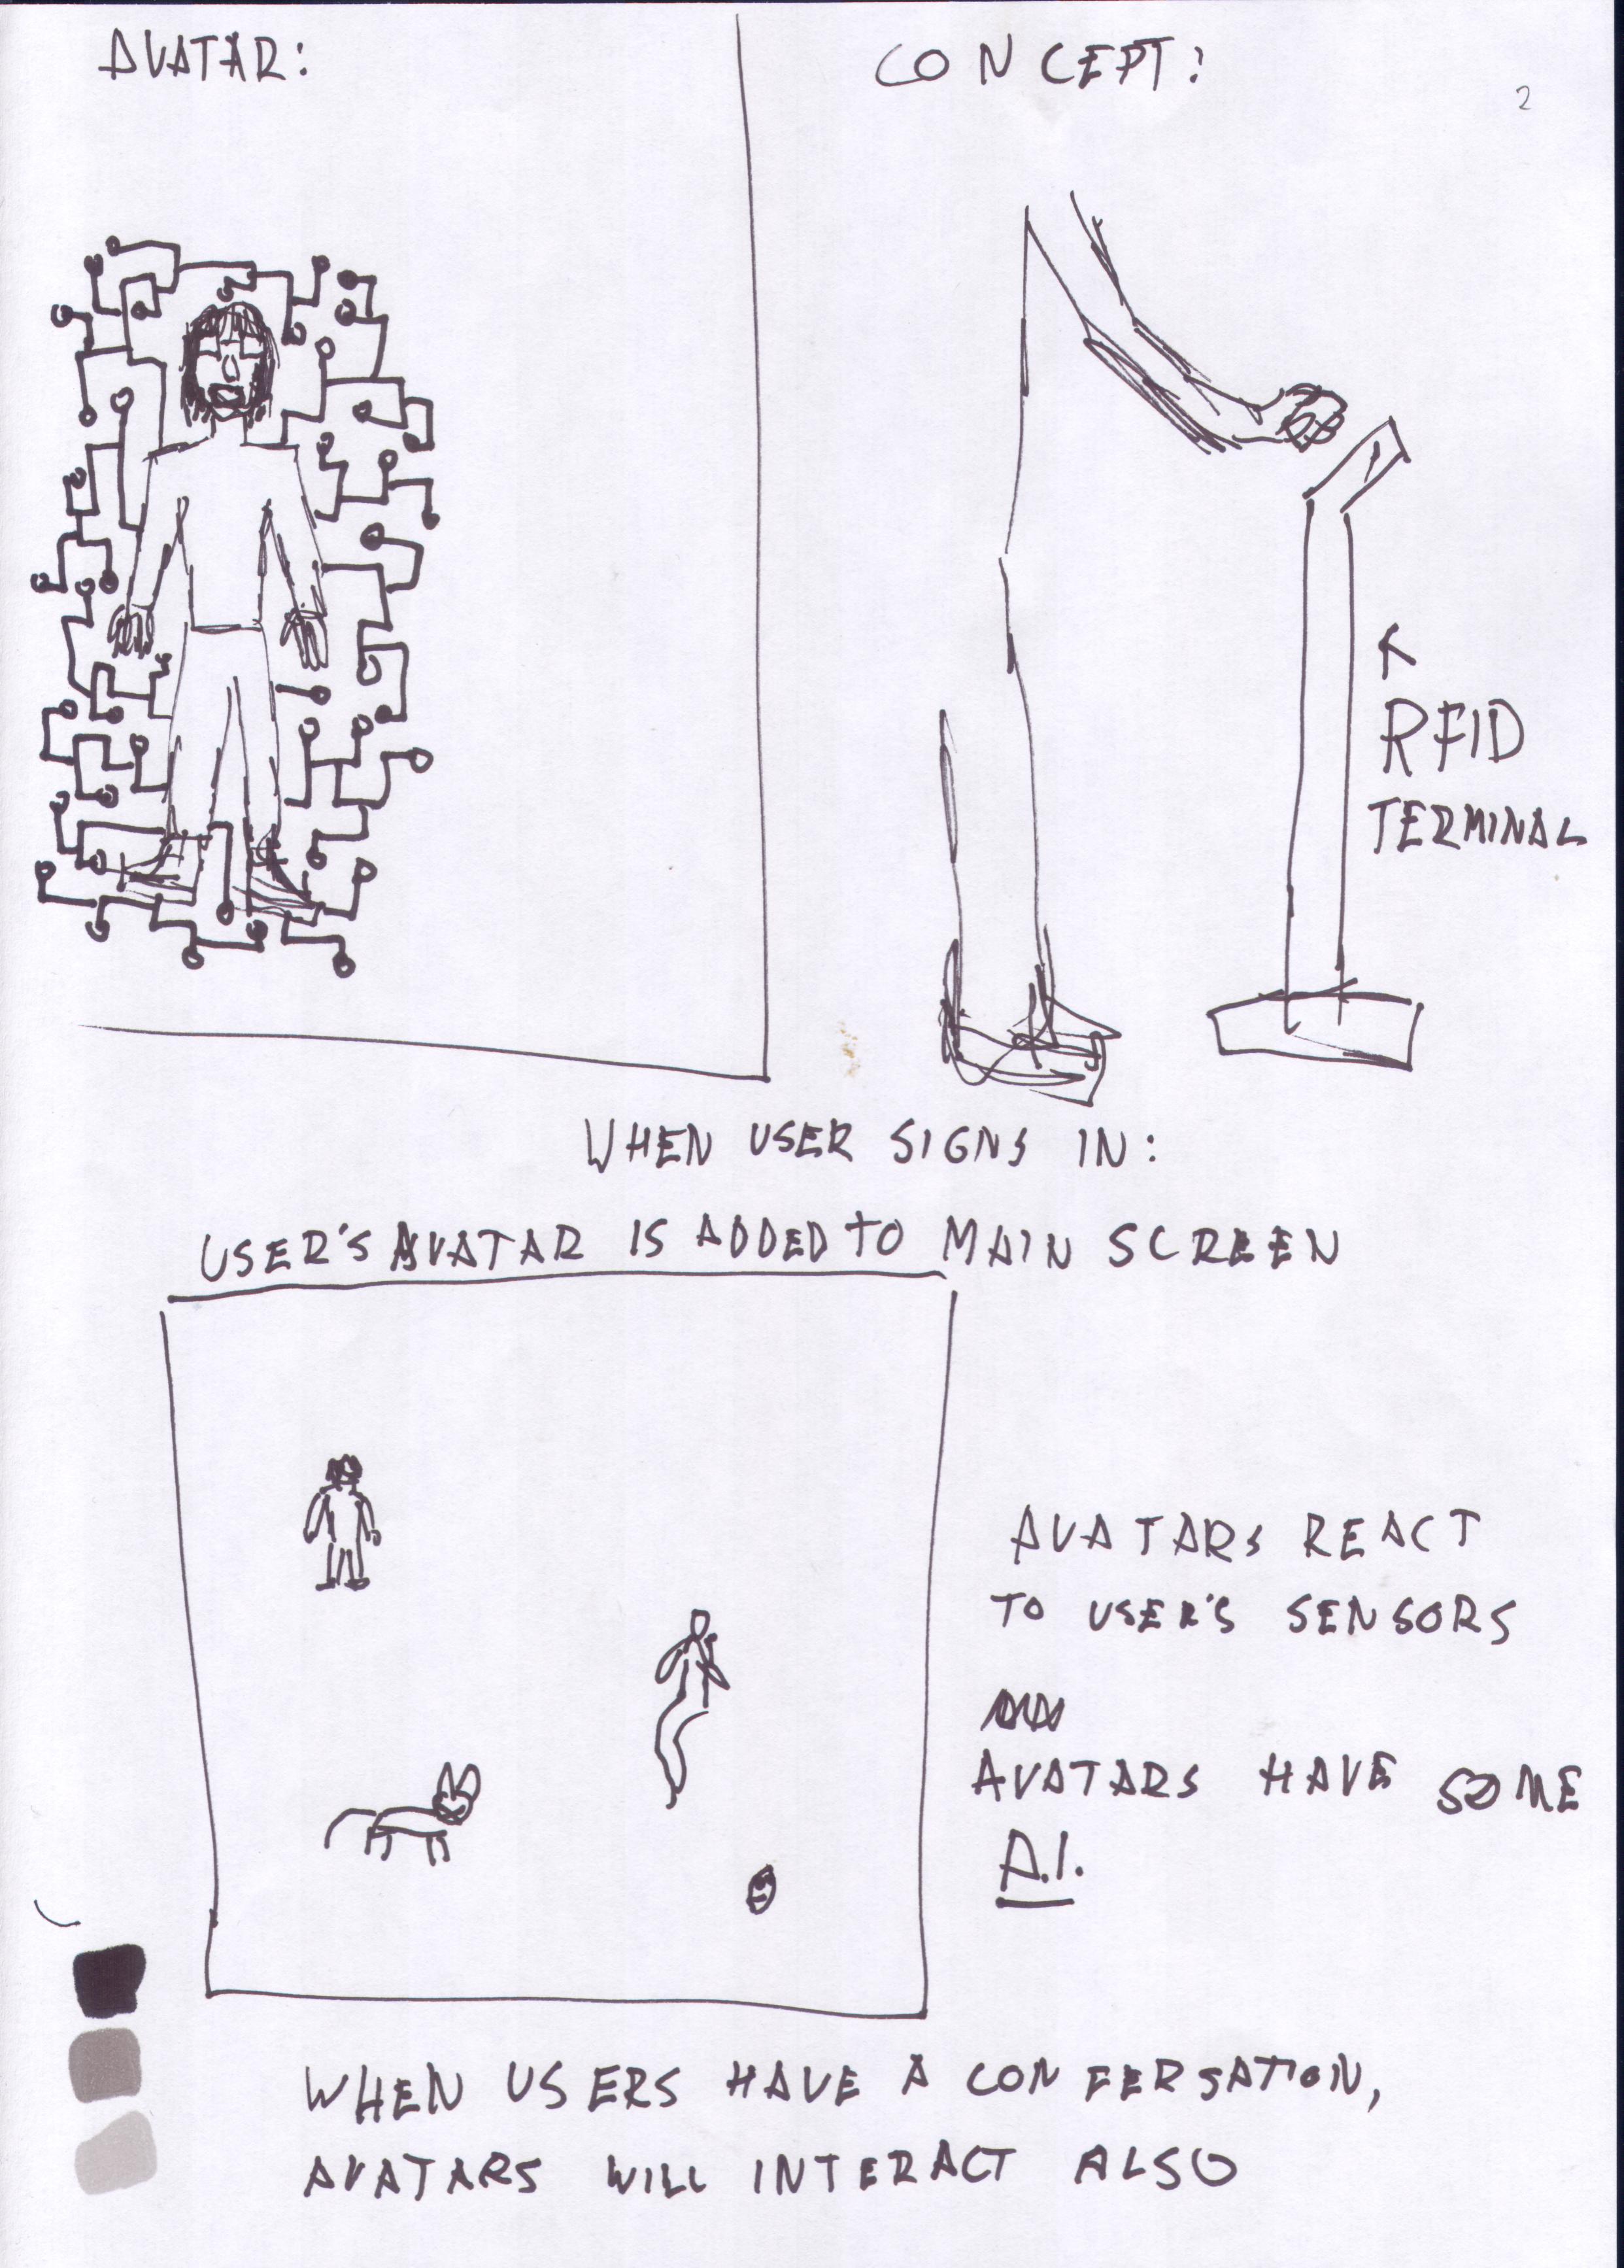 AVATAR:
CONCEPT:
2
RFID
TERMINAL
WHEN USER SIGNS IN:
USER'S AVATAR IS ADDED TO MAIN SCREEN
AVATARS REACT
TO USER'S SENSORS
AVATARS HAVE SOME
A.I.
WHEN USERS HAVE A CONFERSATION,
AVATARS WILL INTERACT ALSO